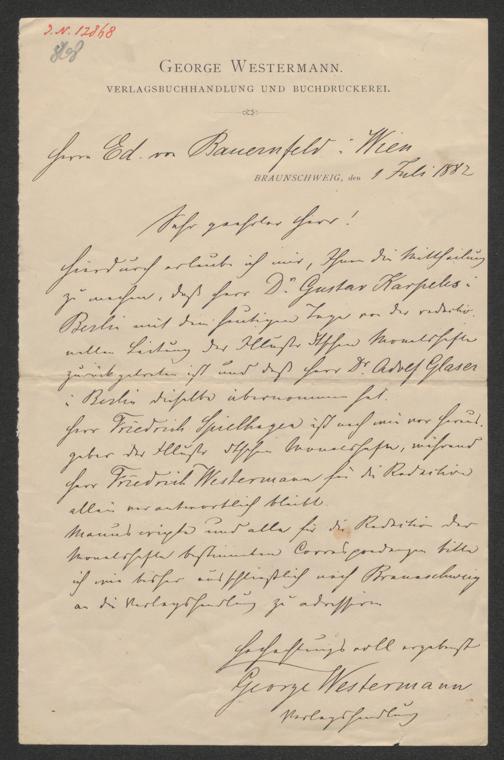 J. N. 12868
GEORGE WESTERMANN.
VERLAGSBUCHHANDLUNG UND BUCHDRUCKEREI.
Herrn Ed. von Bauernfeld i. Wien
BRAUNSCHWEIG, den 1 Juli 1882
Sehr geehrter Herr!
Hierdurch erlaube ich mir, Ihnen die Mittheilung
zu machen, daß Herr Dr Gustav Karpeles i.
Berlin mit dem heutigen Tage von der redactio-
nellen Leitung der Illustr. dtschen Monatshefte
zurückgetreten ist und daß Herr Dr. Adolf Glaser
i. Berlin dieselbe übernommen hat.
Herr Friedrich Spielhagen ist nach wie vor Heraus-
geber der Illustr. dtschen Monatshefte, während
Herr Friedrich Westermann für die Redaction
allein verantwortlich bleibt.
Manuscripte und alle für die Redaction der
Monatshefte bestimmten Correspondenzen bitte
ich wie bisher ausschließlich nach Braunschweig
an die Verlagshandlung zu adressiren
Hochachtungsvoll ergebenst
George Westermann
Verlagshandlung